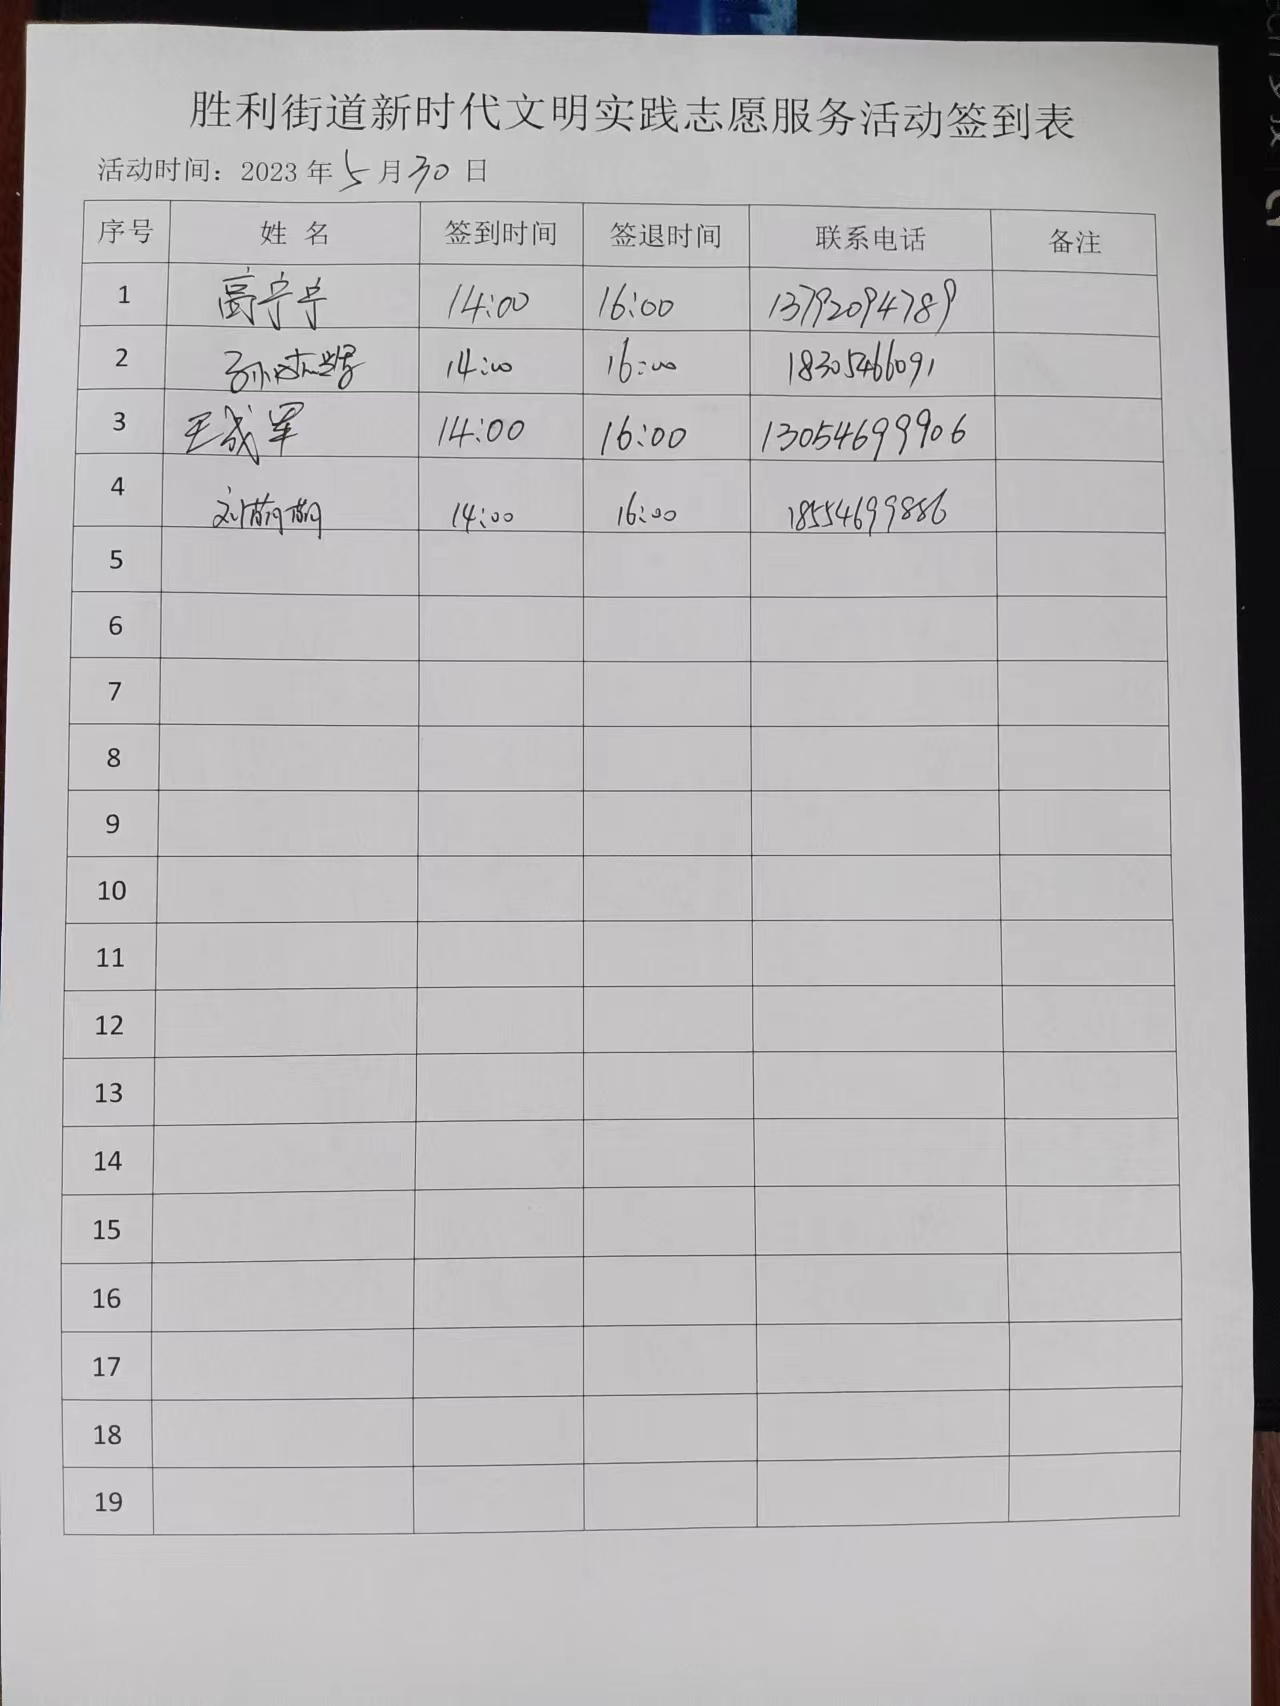 胜利街道新时代文明实践志愿服务活动签到表
活动时间：2023年5月30日
序号 姓 名 签到时间 签退时间 联系电话 备注
1 高宁宁 14:00 16:00 13792094789
2 14:00 16:00 18305466091
3 王成军 14:00 16:00 13054699906
4 刘萌萌 14:00 16:00 18554699886
5
6
7
8
9
10
11
12
13
14
15
16
17
18
19